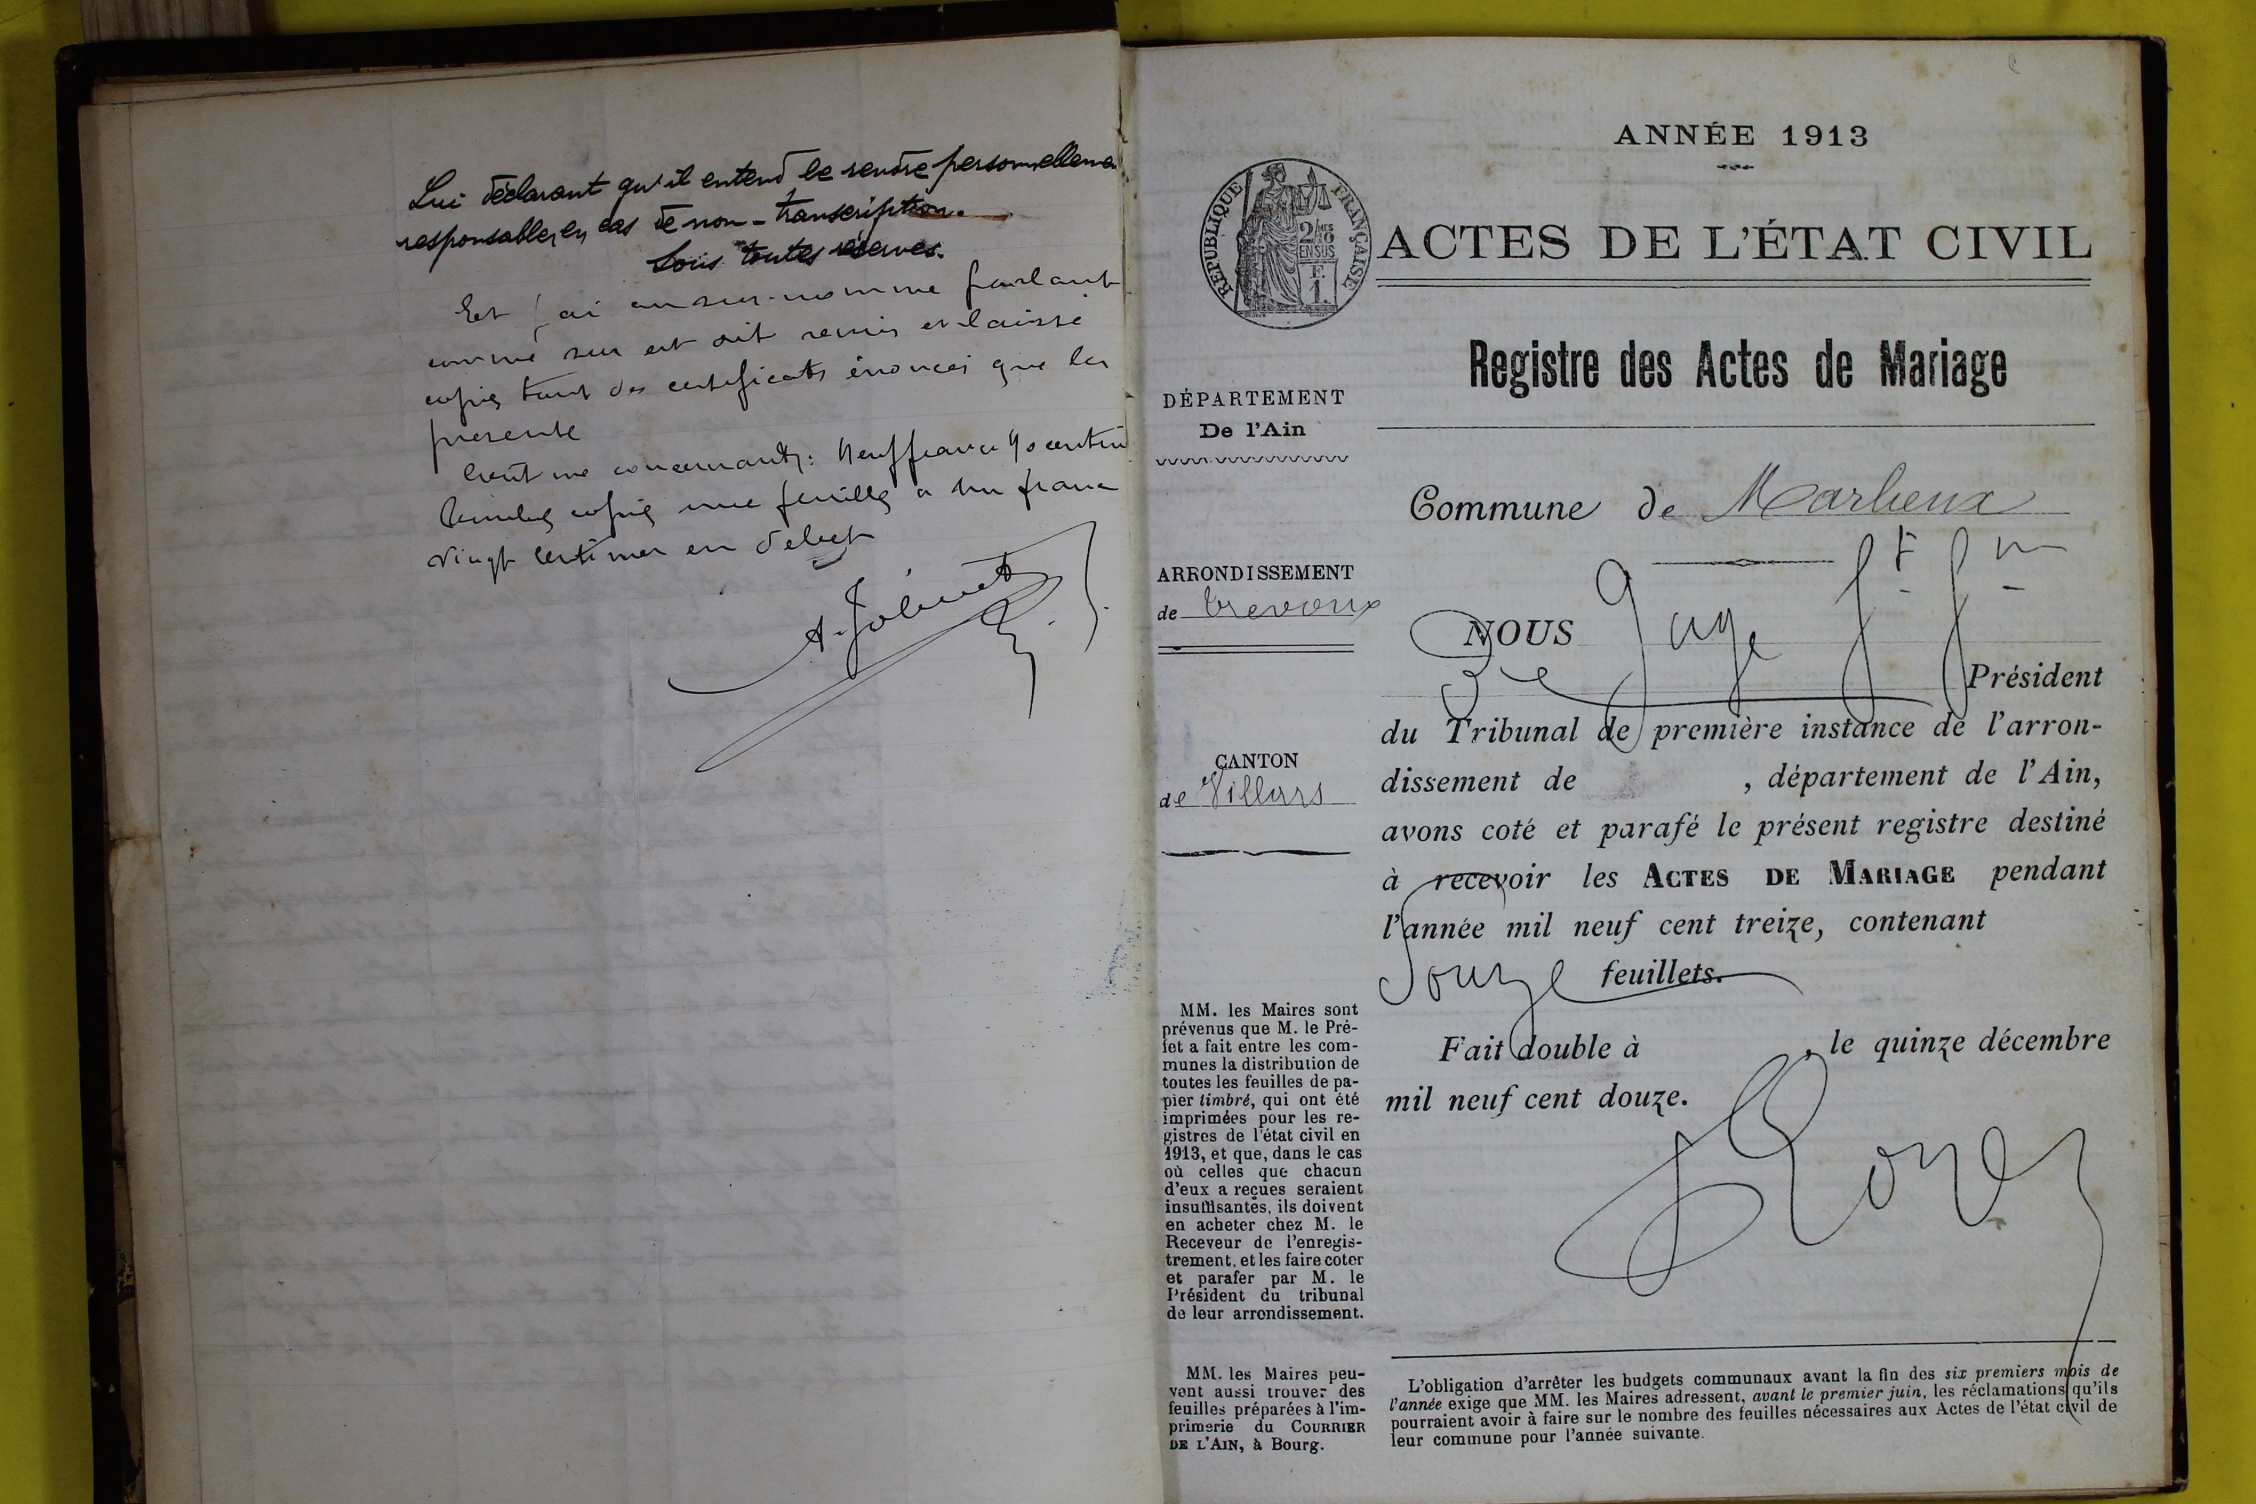 Lui déclarant qu'il entend le rendre personnelleme
responsable, en cas de non-transcription.
Sous toutes réserves.
Et j'ai au sus-nommé parlant
comme sus est dit remis et laissé
copie tant des certificats énoncés que la
presente
Cout me concernant: Neuf francs 40 centim
Timbre copie une feuille a un franc
vingt centimes en debet
ANNÉE 1913
RÉPUBLIQUE FRANÇAISE
2/10 EN SUS
F.
1.
ACTES DE L'ÉTAT CIVIL
Registre des Actes de Mariage
DÉPARTEMENT
De l'Ain
Commune de Marlieux
ARRONDISSEMENT
de Trevoux
NOUS Juge
Président
du Tribunal de première instance de l'arron-
dissement de , département de l'Ain,
avons coté et parafé le présent registre destiné
à recevoir les ACTES DE MARIAGE pendant
l'année mil neuf cent treize, contenant
Douze feuillets.
Fait double à , le quinze décembre
mil neuf cent douze.
CANTON
de Villars
MM. les Maires sont
prévenus que M. le Pré-
fet a fait entre les com-
munes la distribution de
toutes les feuilles de pa-
pier timbré, qui ont été
imprimées pour les re-
gistres de l'état civil en
1913, et que, dans le cas
où celles que chacun
d'eux a reçues seraient
insuffisantes, ils doivent
en acheter chez M. le
Receveur de l'enregis-
trement, et les faire coter
et parafer par M. le
Président du tribunal
de leur arrondissement.
MM. les Maires peu-
vent aussi trouver des
feuilles préparées à l'im-
primerie du COURRIER
DE L'AIN, à Bourg.
L'obligation d'arrêter les budgets communaux avant la fin des six premiers mois de
l'année exige que MM. les Maires adressent, avant le premier juin, les réclamations qu'ils
pourraient avoir à faire sur le nombre des feuilles nécessaires aux Actes de l'état civil de
leur commune pour l'année suivante.